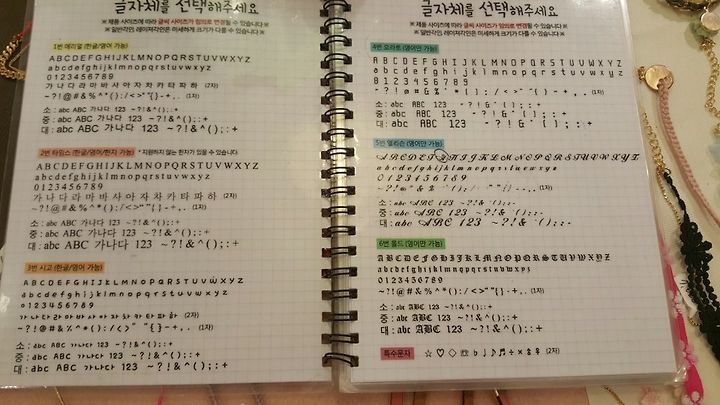 글자체를 선택해주세요
※ 제품 사이즈에 따라 글씨 사이즈가 임의로 변경될 수 있습니다 ※
※ 일반각인, 레이저각인은 미세하게 크기가 다를 수 있습니다 ※
1번 에리얼 (한글/영어 가능)
ABCDEFGHIJKLMNOPQRSTUVWXYZ
abcdefghijklmnopqrstuvwxyz
0123456789
가나다라마바사아자차카타파하 (2자)
~?!@#&%^*():/<>"“{}-+,. (1자)
소 : abc ABC 가나다 123 ~?!&^();:+
중 : abc ABC 가나다 123 ~?!&^();:+
대 : abc ABC 가나다 123 ~?!&^();:+
2번 타임스 (한글/영어/한자 가능) * 지원하지 않는 한자가 있을 수 있습니다.
ABCDEFGHIJKLMNOPQRSTUVWXYZ
abcdefghijklmnopqrstuvwxyz
0123456789
가나다라마바사아자차카타파하 (2자)
~?!@#&%^*():/<>"“{}-+,. (1자)
소 : abc ABC 가나다 123 ~?!&^();:+
중 : abc ABC 가나다 123 ~?!&^();:+
대 : abc ABC 가나다 123 ~?!&^();:+
3번 시고 (한글/영어 가능)
ABCDEFGHIJKLMNOPQRSTUVWXYZ
abcdefghijklmnopqrstuvwxyz
0123456789
가나다라마바사아자차카타파하 (2자)
~?!@#&%^*():/<>"“{}-+,. (1자)
소 : abc ABC 가나다 123 ~?!&^();:+
중 : abc ABC 가나다 123 ~?!&^();:+
대 : abc ABC 가나다 123 ~?!&^();:+
글자체를 선택해주세요
※ 제품 사이즈에 따라 글씨 사이즈가 임의로 변경될 수 있습니다 ※
※ 일반각인, 레이저각인은 미세하게 크기가 다를 수 있습니다 ※
4번 모라트 (영어만 가능)
ABCDEFGHIJKLMNOPQRSTUVWXYZ
abcdefghijklmnopqrstuvwxyz
0123456789
소 : abc ABC 123
중 : abc ABC 123
대 : abc ABC 123
5번 엘리슨 (영어만 가능)
ABCDEFGHIJKLMNOPQRSTUVWXYZ
abcdefghijklmnopqrstuvwxyz
0123456789
소 : abc ABC 123
중 : abc ABC 123
대 : abc ABC 123
6번 올드 (영어만 가능)
ABCDEFGHIJKLMNOPQRSTUVWXYZ
abcdefghijklmnopqrstuvwxyz
0123456789
~?!@#&%^*():/<>"“{}-+,. (1자)
소 : abc ABC 123 ~?!&^();:+
중 : abc ABC 123 ~?!&^();:+
대 : abc ABC 123 ~?!&^();:+
특수문자 ☆ ♡ ◇ ♭ ♩ ♪ ♬ ÷ × ♀ (2자)